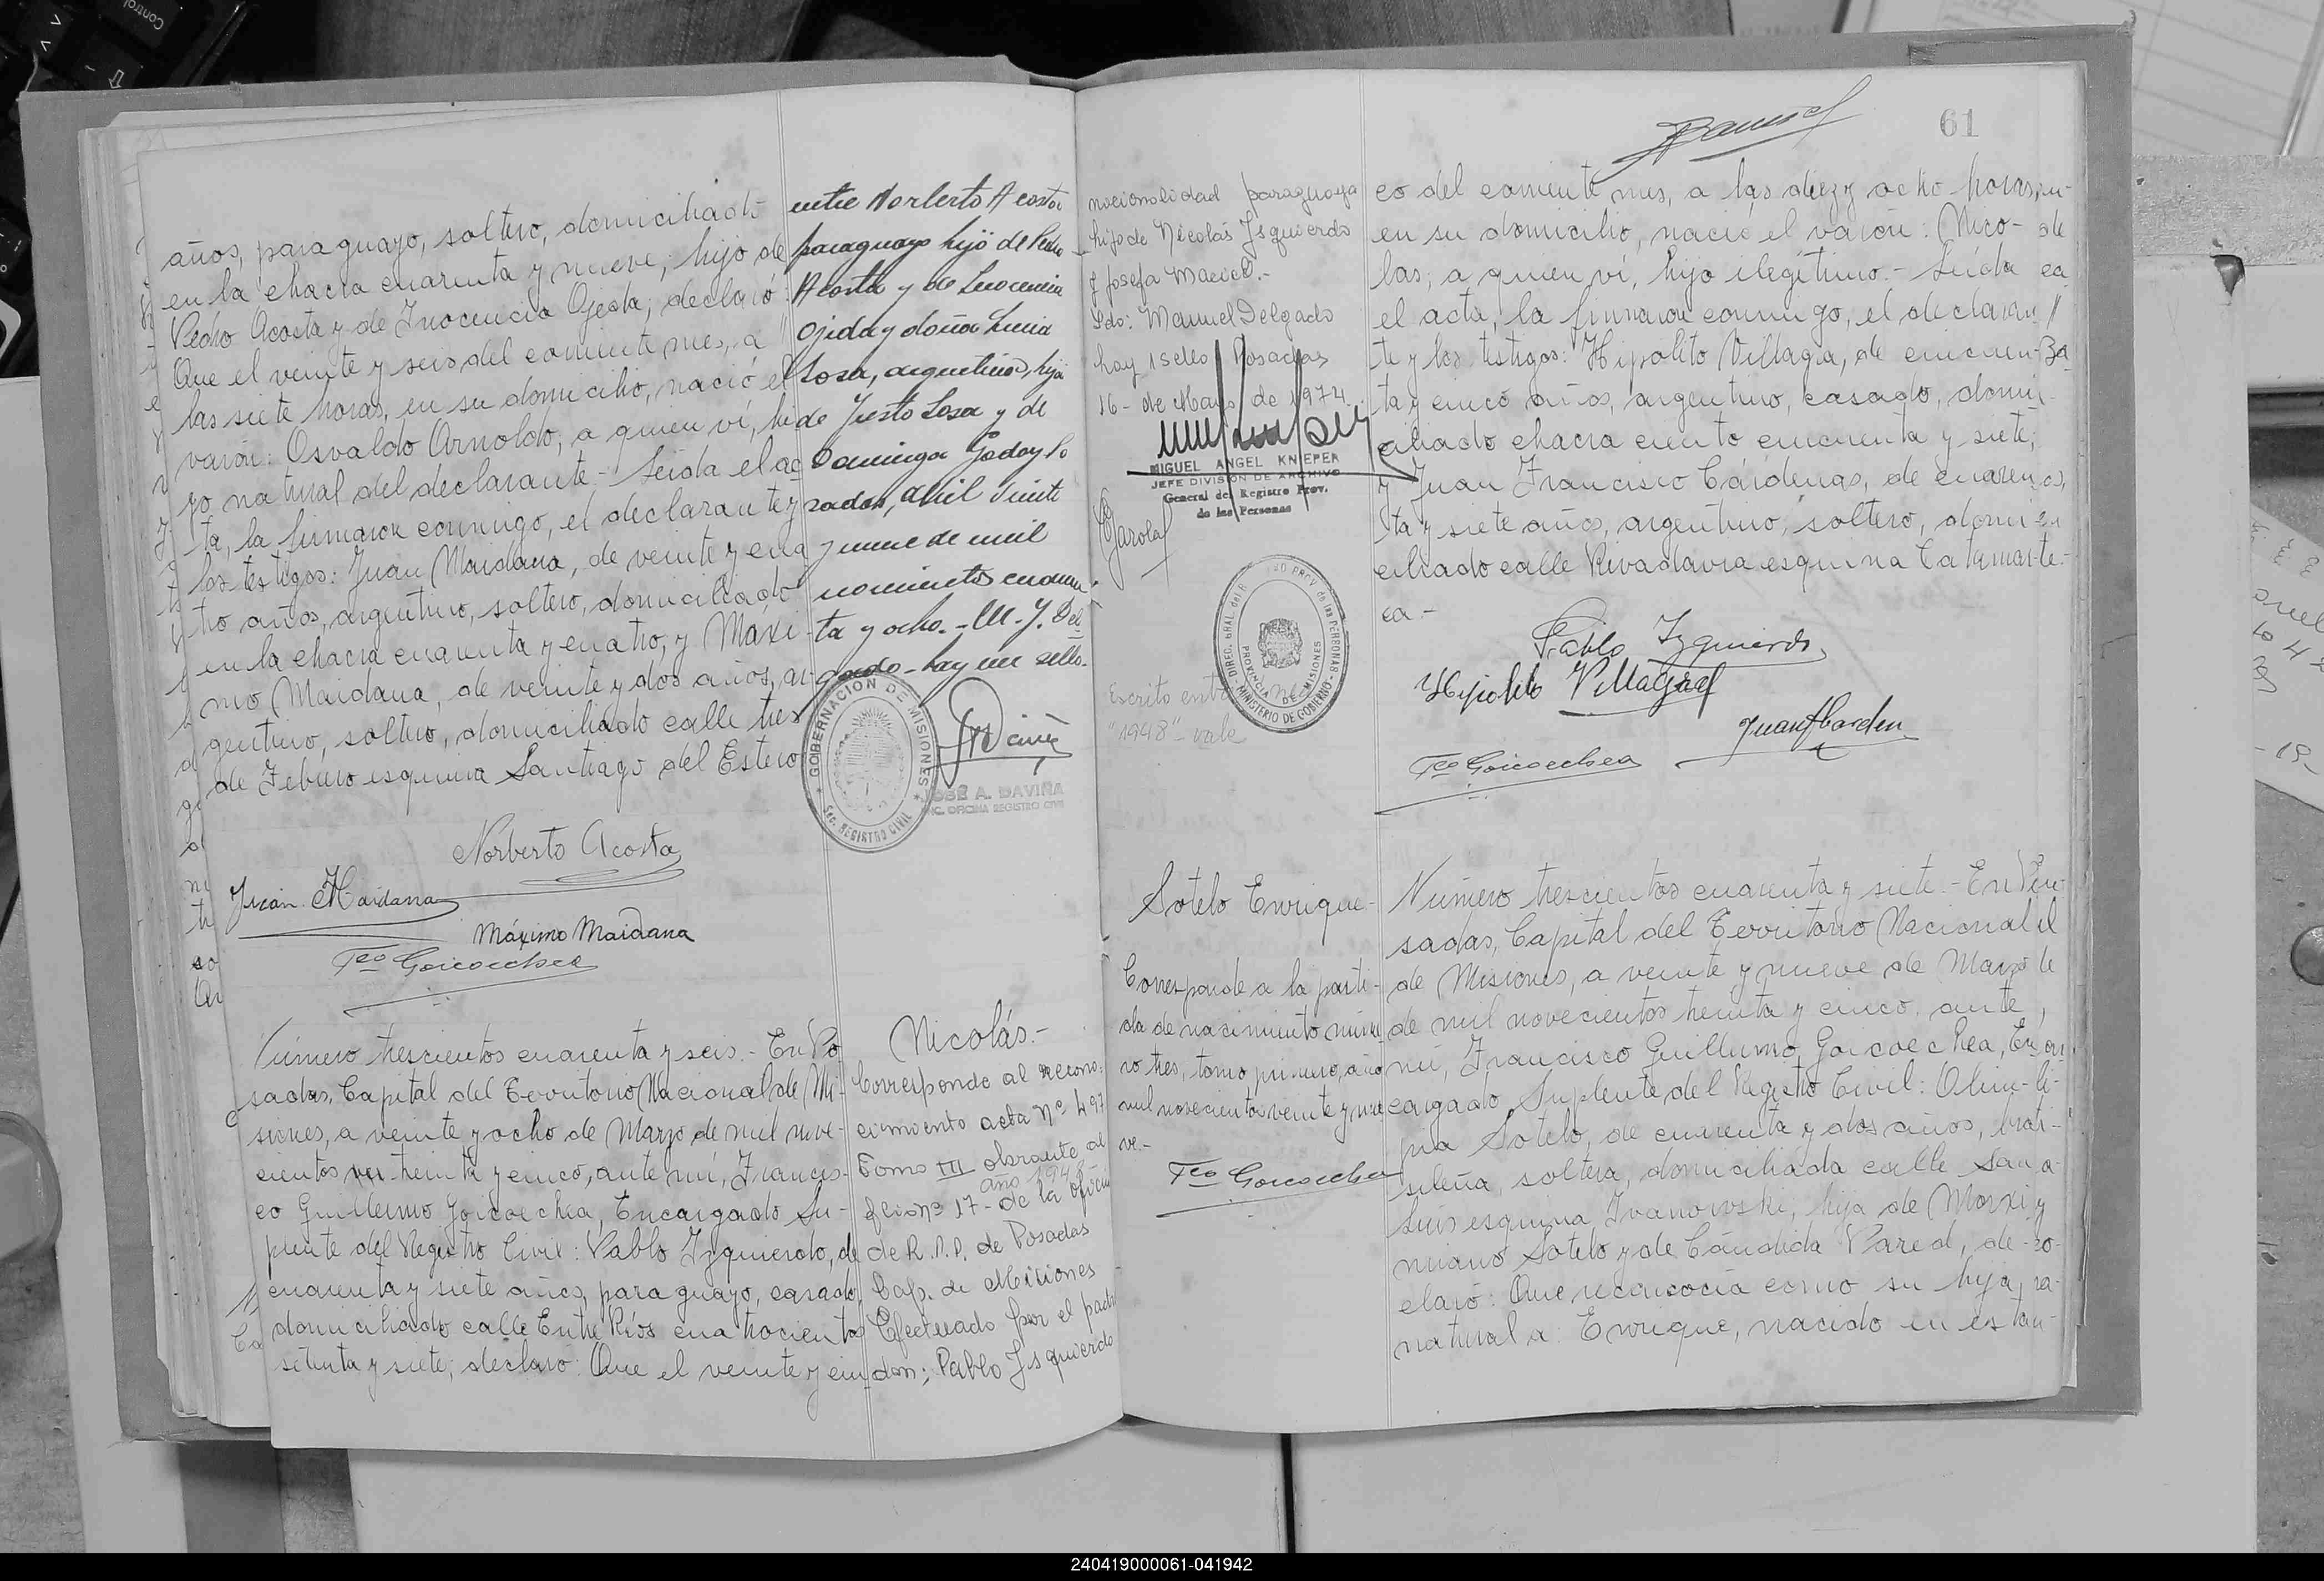 años, paraguayo, soltero, domiciliado
en la chacra cuarenta y nueve; hijo de
Pedro Acosta y de Inocencia Ojeda; declaró:
Que el veinte y seis del corriente mes, a
las siete horas, en su domicilio, nació el
varón: Osvaldo Arnoldo, a quien ví, hi
jo natural del declarante.- Leída el ac
ta, la firmaron conmigo, el declarante y
los testigos: Juan Maidana, de veinte y cua
tro años, argentino, soltero, domiciliado
en la chacra cuarenta y cuatro, y Máxi
mo Maidana, de veinte y dos años, ar
gentino, soltero, domiciliado calle tres
de Febrero esquina Santiago del Estero
Norberto Acosta
Juan Maidana
Máximo Maidana
Fco Goicoechea
entre Norberto Acosta
paraguayo hijo de Pedro
Acosta y de Inocencia
Ojeda y doña Lucia
Sosa, argentina, hija
de Justo Sosa y de
Dominga Godoy Po
sadas, abril veinte
y nueve de mil
novecientos cuaren
ta y ocho.- M. J. Del
gado - hay un sello.
GOBERNACION DE MISIONES
Sec. REGISTRO CIVIL
JOSÉ A. DAVIÑA
ENC. OFICINA REGISTRO CIVIL
Número trescientos cuarenta y seis.- En Po
sadas, Capital del Territorio Nacional de Mi-
siones, a veinte y ocho de Marzo de mil nove-
cientos treinta y cinco, ante mí, Francis-
co Guillermo Goicoechea, Encargado Su-
plente del Registro Civil: Pablo Izquierdo, de
cuarenta y siete años, paraguayo, casado,
domiciliado calle Entre Ríos cuatrocientos
setenta y siete; declaró: Que el veinte y cin
Nicolás.-
Corresponde al recono-
cimiento acta Nº 497
Tomo III obrante al
año 1948-
folio nº 17- de la oficina
de R.P.P. de Posadas
Cap. de Misiones
Efectuado por el padre
don; Pablo Isquierdo
nacionalidad paraguaya
hijo de Nicolás Isquierdo
y Josefa Maciel.-
Fdo: Manuel Delgado
hay 1 sello Posadas
16- de Mayo de 1974.
MIGUEL ANGEL KNIEPER
JEFE DIVISION DE ARCHIVO
General del Registro Prov.
de las Personas
Escrito entre
"1948" - vale
DIREC. GRAL. del R
PROV. de las PERSONAS
MINISTERIO DE GOBIERNO
PROVINCIA DE MISIONES
61
co del corriente mes, a las diez y ocho horas,
en su domicilio, nació el varón: Nico-
las; a quien ví, hijo ilegítimo.- Leída
el acta, la firmaron conmigo, el declaran
te y los testigos: Hipolito Villagra, de cincuen-
ta y cinco años, argentino, casado, domi-
ciliado chacra ciento cincuenta y siete;
y Juan Francisco Cárdenas, de cuaren
ta y siete años, argentino, soltero, domi
ciliado calle Rivadavia esquina Catamar-
ca.-
Pablo Izquierdo
Hipolito Villagra
Fco Goicoechea
Sotelo Enrique-
Corresponde a la parti-
da de nacimiento núme
ro tres, tomo primero, año
mil novecientos veinte y nue
ve.-
Fco Goicoechea
Número trescientos cuarenta y siete.- En Po
sadas, Capital del Territorio Nacional
de Misiones, a veinte y nueve de Marzo
de mil novecientos treinta y cinco, ante
mí, Francisco Guillermo Goicoechea, En
cargado Suplente del Registro Civil: Olim-
pia Sotelo, de cuarenta y dos años, brasi-
sileña, soltera, domiciliada calle San
Luis esquina Ivanowski, hija de Maxi
miano Sotelo y de Cándida Pared, de-
claró: Que reconocía como su hijo
natural a: Enrique, nacido en es
240419000061-041942